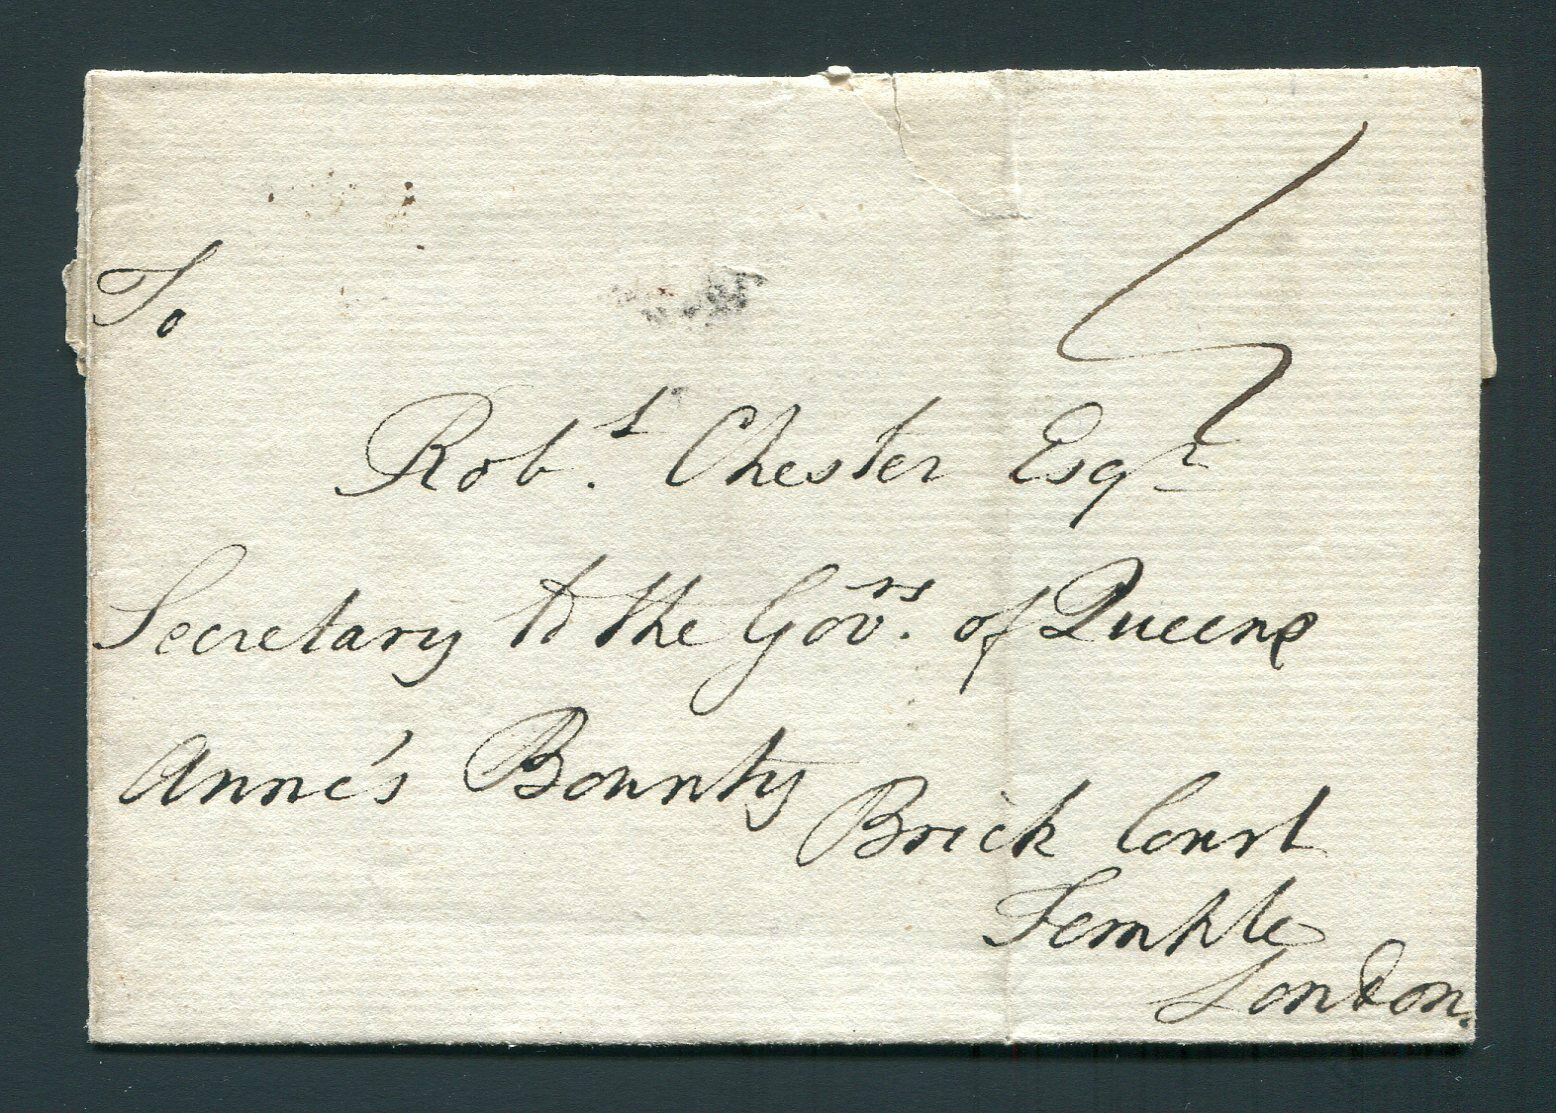 To
Robt. Chester Esqr
Secretary to the Govrs. of Queene
Anne's Bounty
Brick Court
Temple
London.